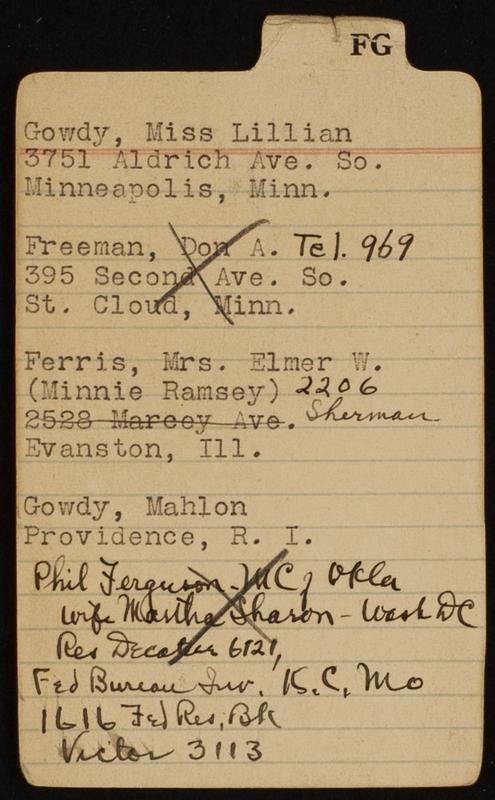 FG
Gowdy, Miss Lillian
3751 Aldrich Ave. So.
Minneapolis, Minn.
Freeman, Don A. Tel. 969
395 Second Ave. So.
St. Cloud, Minn.
Ferris, Mrs. Elmer W.
(Minnie Ramsey) 2206
2528 Marcey Ave. Sherman
Evanston, Ill.
Gowdy, Mahlon
Providence, R. I.
Phil Ferguson - MC of Okla
wife Martha Sharon - Wash DC
Res Decatur 6121,
Fed Bureau Inv. K.C, Mo
1616 Fed Res, Bk
Victor 3113